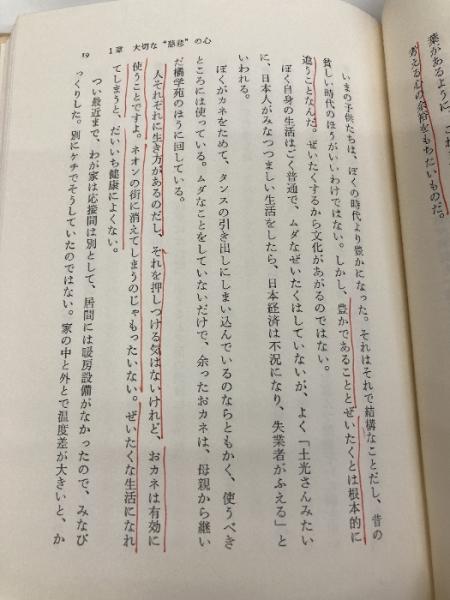 葉があるように、
考える心の余裕をもちたいものだ。
いまの子供たちは、ぼくの時代より豊かになった。それはそれで結構なことだし、昔の
貧しい時代のほうがいいわけではない。しかし、豊かであることとぜいたくとは根本的に
違うことなんだ。ぜいたくするから文化があがるのではない。
ぼく自身の生活はごく普通で、ムダなぜいたくはしていないが、よく「土光さんみたい
に、日本人がみなつつましい生活をしたら、日本経済は不況になり、失業者がふえる」と
いわれる。
ぼくがカネをためて、タンスの引き出しにしまい込んでいるのならともかく、使うべき
ところには使っている。ムダなことをしていないだけで、余ったおカネは、母親から継い
だ橘学苑のほうに回している。
人それぞれに生き方があるのだし、それを押しつける気はないけれど、おカネは有効に
使うことですよ。ネオンの街に消えてしまうのじゃもったいない。ぜいたくな生活になれ
てしまうと、だいいち健康によくない。
つい最近まで、わが家は応接間は別として、居間には暖房設備がなかったので、みなび
っくりした。別にケチでそうしていたのではない。家の中と外とで温度差が大きいと、か
19 1章 大切な“慈悲”の心